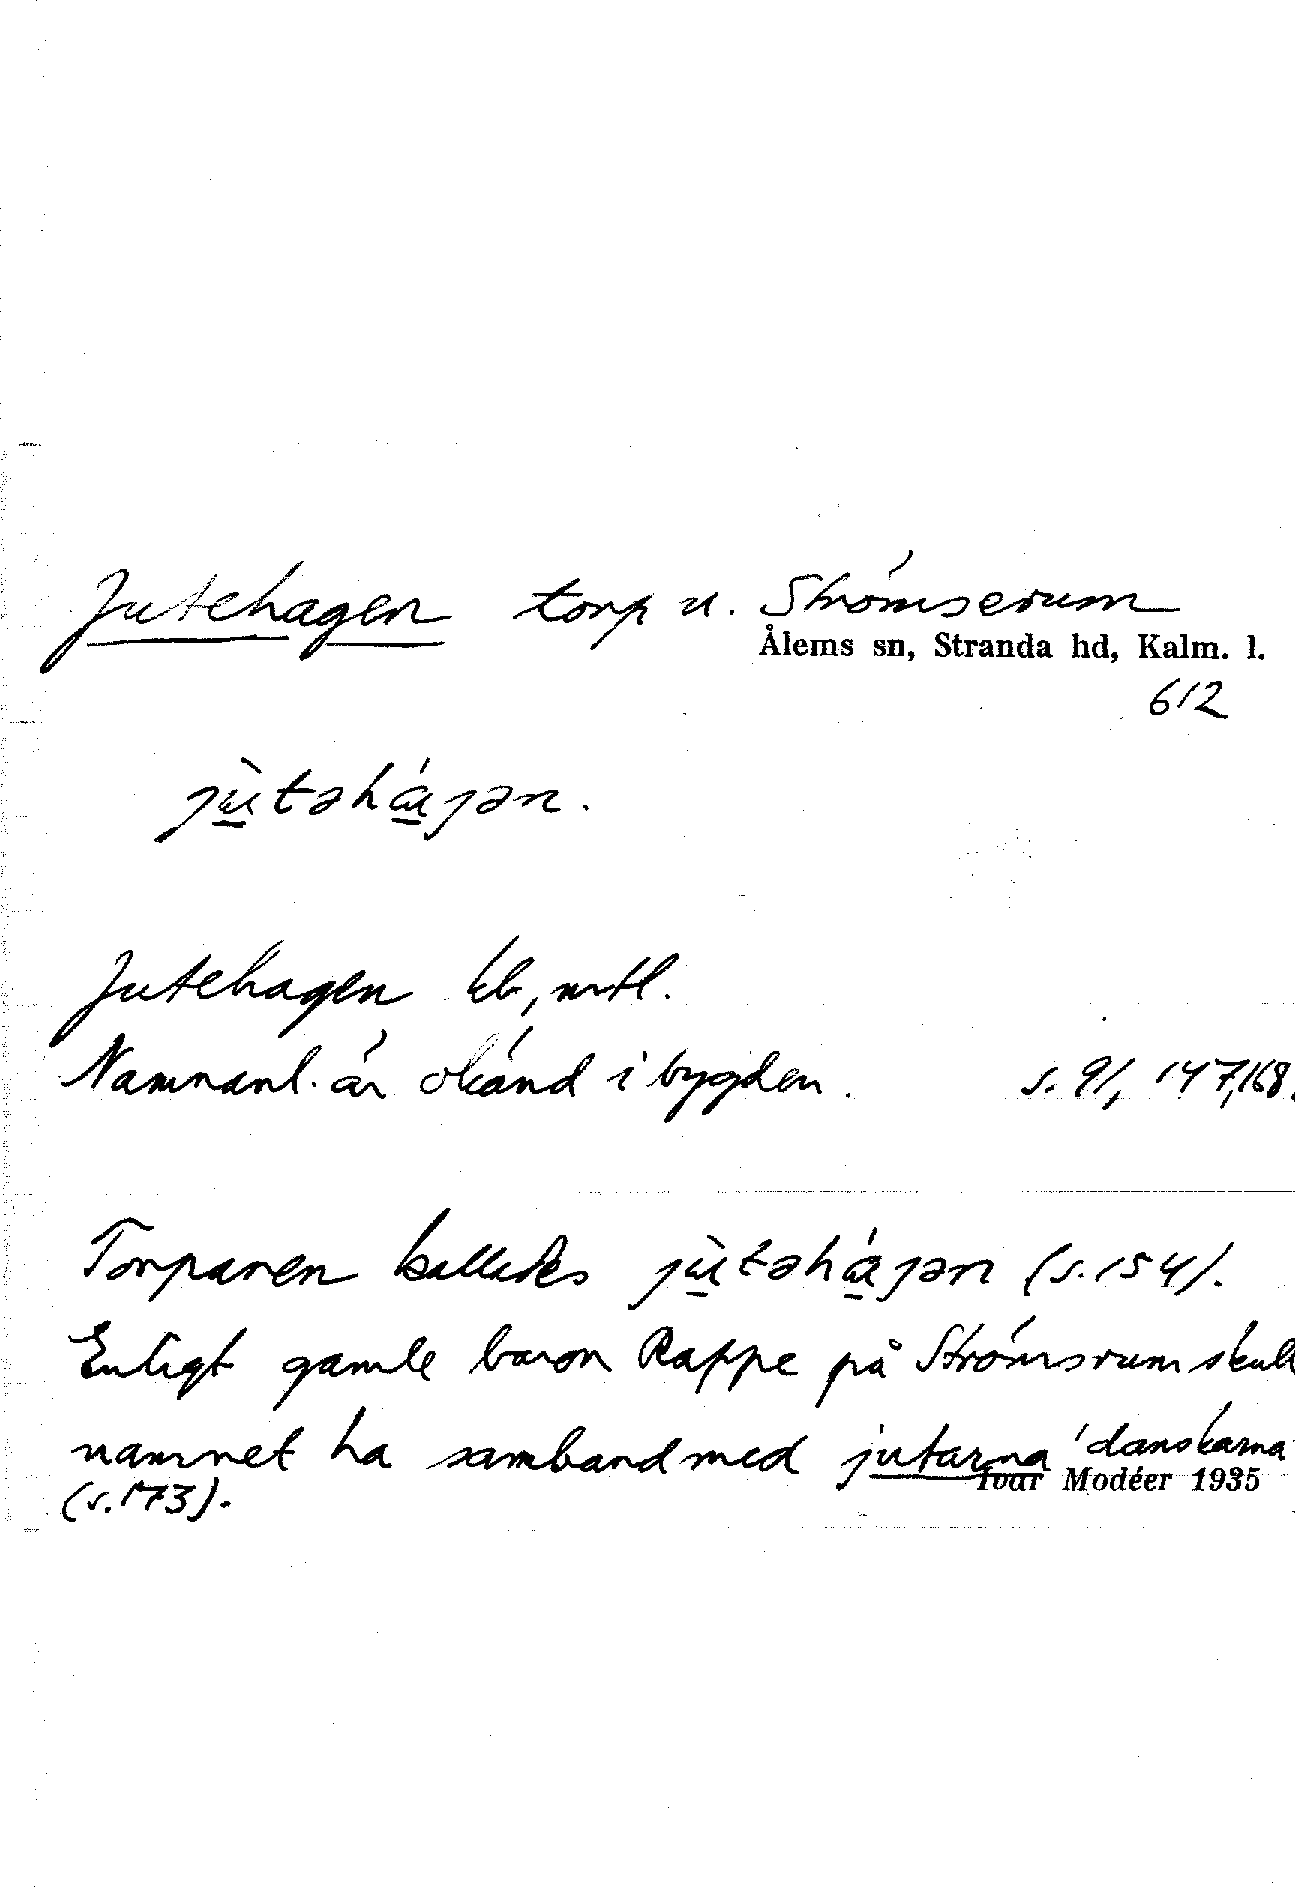 Jutehagen torp u. Strömserum
Ålems sn, Stranda hd, Kalm. l.
612
jùtəhájən.
Jutehagen kb, mtl.
Namnanl. är okänd i bygden. s. 91, 147, 168.
Torparen kallades jùtəhájən (s. 154).
Enligt gamle baron Rappe på Strömsrum skull
namnet ha samband med jutarna 'danskarna
(s. 173).
Ivar Modéer 1935